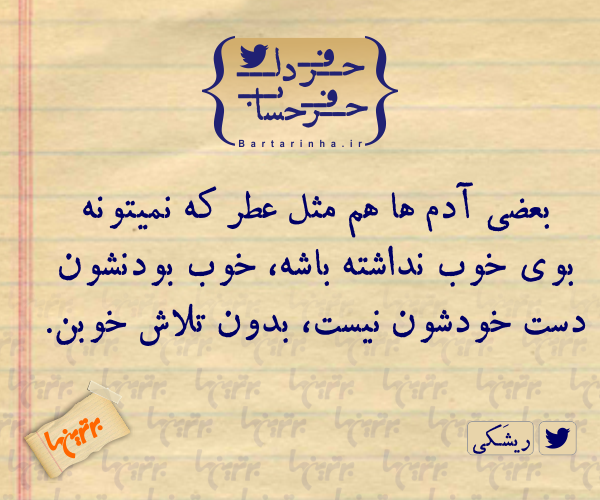 حرف دل
حرف حساب
Bartarinha.ir
بعضی آدم ها هم مثل عطر که نمیتونه
بوی خوب نداشته باشه، خوب بودنشون
دست خودشون نیست، بدون تلاش خوبن.
برترین‌ها
ریشَکی